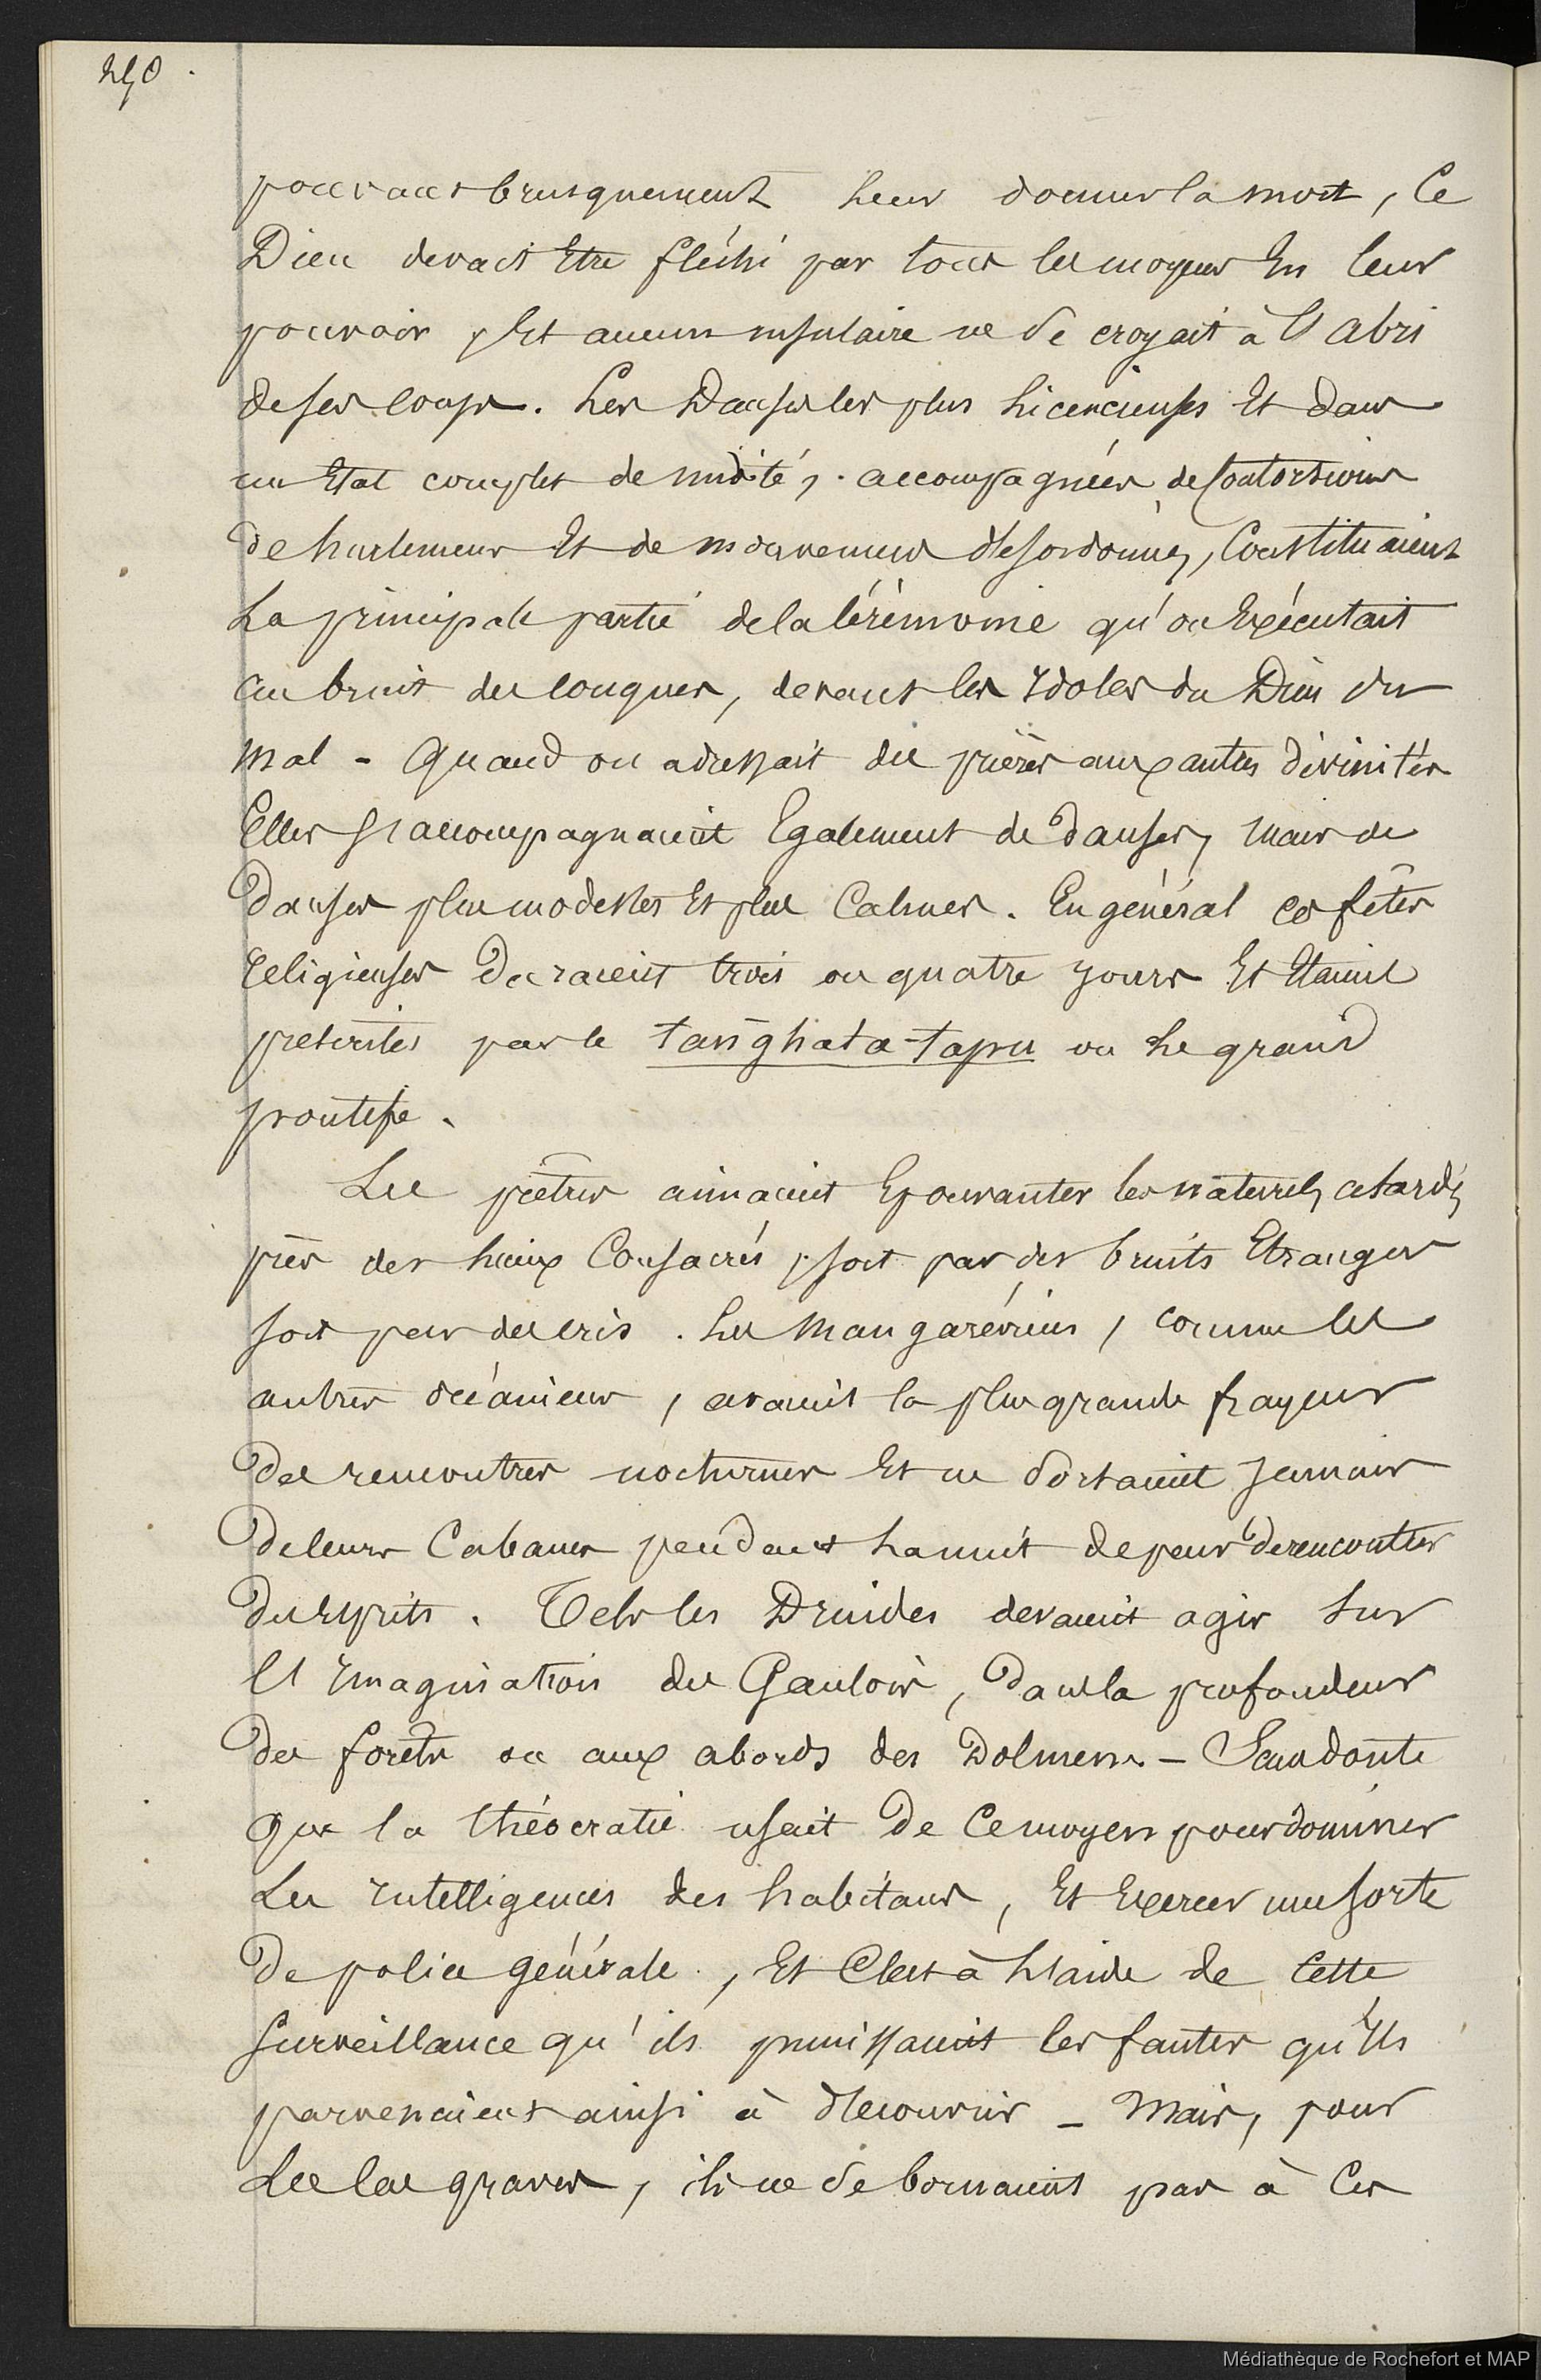 290.
pouvant brusquement leur donner la mort, ce
Dieu devait Etre fléchi par tous les moyens En leur
pouvoir, Et aucun insulaire ne se croyait à l'abri
de ses coups. Les Danses les plus licencieuses Et dans
un Etat complet de nudité, accompagnées de Contorsions
de hurlemens Et de mouvemens désordonnés, Constituaient
La principale partie de la Cérémonie qu'on Exécutait
au bruit des conques, devant les Idoles du Dieu du
mal - Quand on adressait des prières aux autres divinités
Elles s'accompagnaient Egalement de danses, mais de
Danses plus modestes Et plus Calmes. En général ces fêtes
religieuses Duraient trois ou quatre jours Et Etaient
présidées par le tanghata-tapu ou le grand
pontife.
Les prêtres aimaient Epouvanter les naturels attardés
près des lieux Consacrés, soit par des bruits Etranges
soit par des cris. Les Mangaréviens, comme les
autres océaniens, avaient la plus grande frayeur
des rencontres nocturnes Et ne sortaient jamais
de leurs Cabanes pendant la nuit de peur de rencontrer
des Esprits. Tels les Druides devaient agir sur
l'Imagination des Gaulois, Dans la profondeur
des forêts ou aux abords des Dolmens - Sans doute
que la théocratie usait de ce moyen pour dominer
Les Intelligences des habitans, Et Exercer une sorte
De police générale, Et C'est à l'aide de Cette
surveillance qu'ils punissaient les fautes qu'Ils
parvenaient ainsi à découvrir - Mais, pour
Les cas graves, ils ne se bornaient pas à Ces
Médiathèque de Rochefort et MAP